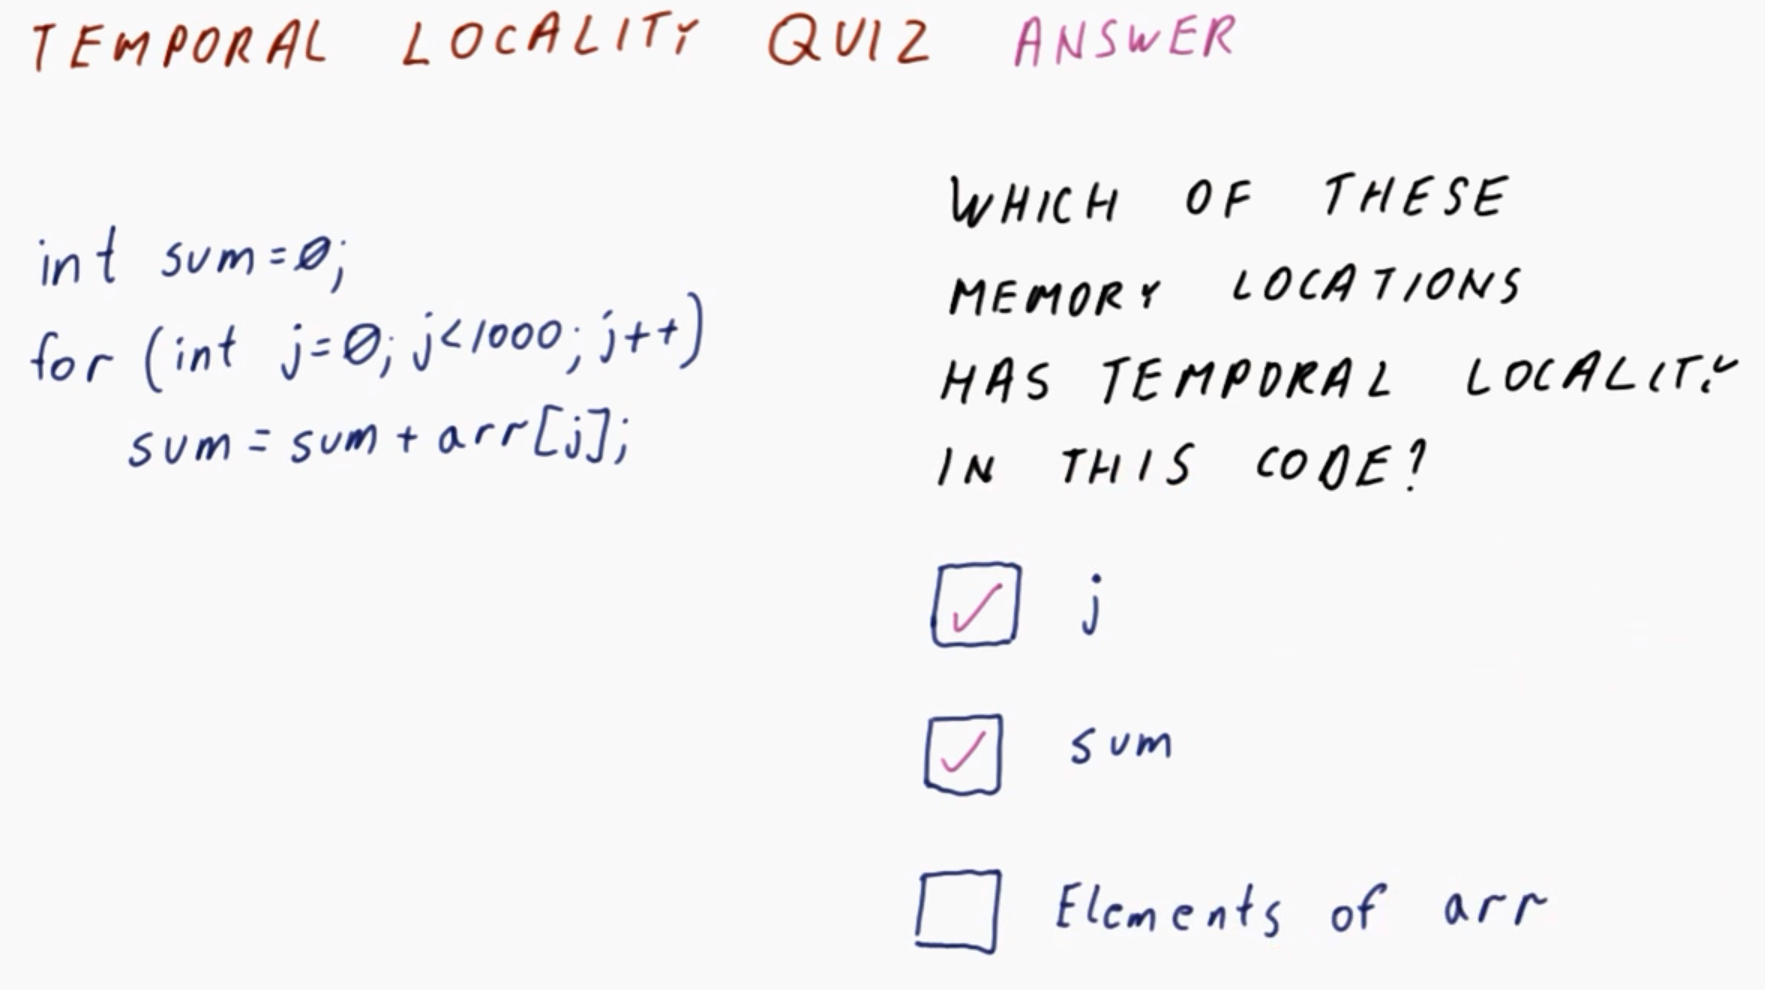 TEMPORAL LOCALITY QUIZ ANSWER
int sum=0;
for (int j=0; j<1000; j++)
sum = sum + arr[j];
WHICH OF THESE
MEMORY LOCATIONS
HAS TEMPORAL LOCALITY
IN THIS CODE?
j
sum
Elements of arr